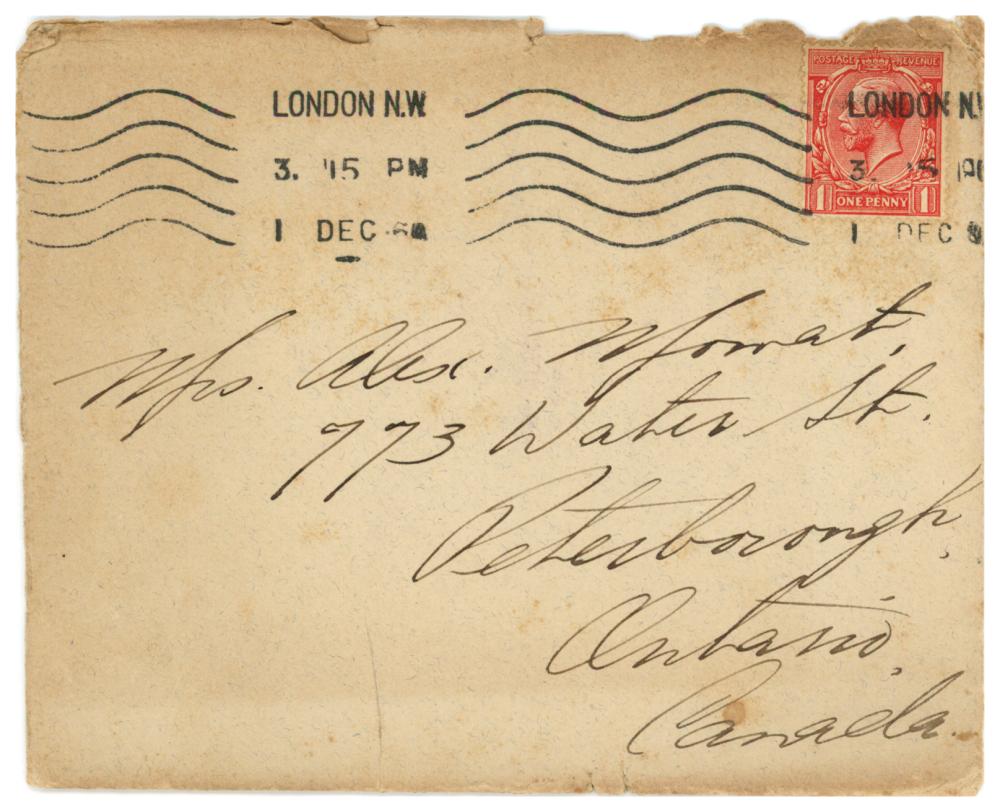 POSTAGE REVENUE
LONDON N.W LONDON N.W
3. 15 PM 3. 15 P
1 DEC 1 DEC
1 ONE PENNY 1
Mrs. Alex. Mowat,
773 Water St.
Peterborough,
Ontario,
Canada.